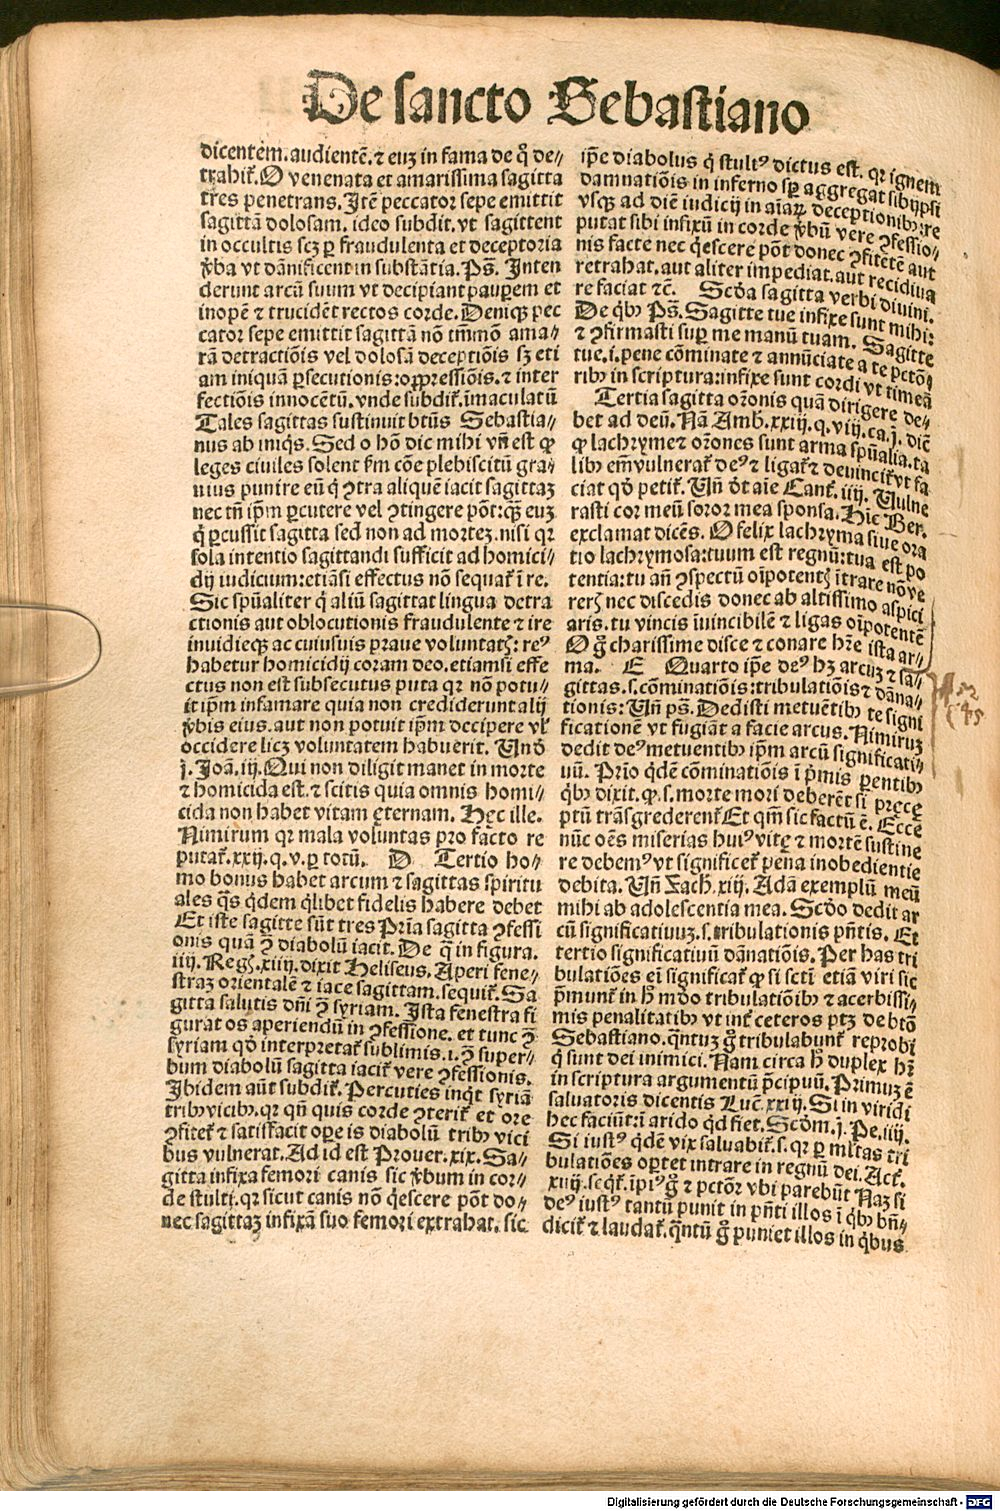 De sancto Sebastiano
dicentem.audientẽ.⁊ euꝫ in fama de q̊ de⸗
trahit᷑.O venenata et amarissima sagitta
tres penetrans. Itẽ peccator sepe emittit
sagittã dolosam. ideo subdit. vt sagittent
in occultis scꝫ ꝑ fraudulenta et deceptoria
v̾ba vt dãnificent in substãtia. Ps̃. Inten
derunt arcũ suum vt decipiant pauꝑem et
inopẽ ⁊ trucidẽt rectos corde. Deniqꝫ pec
cator sepe emittit sagittã nõ tm̃mõ ama⸗
rã detractiõis vel dolosã deceptiõis sꝫ eti
am iniquã ꝑsecutionis:opp̃ressiõis. ⁊ inter
fectiõis innocẽtũ. vnde subdit᷑. ĩmaculatũ
Tales sagittas sustinuit btũs Sebastia⸗
nus ab iniq̃s. Sed o hõ dic mihi vñ est ꝙ
leges ciuiles solent ẜm cõe plebiscitũ gra⸗
uius punire eũ q̇ ꝯtra aliquẽ iacit sagittaꝫ
nec tñ ip̃m ꝑcutere vel ꝯtingere põt:qꝫ euꝫ
q̇ ꝑcussit sagitta sed non ad morteꝫ. nisi qꝛ
sola intentio sagittandi sufficit ad homici⸗
dij iudicium:etiãsi effectus nõ sequat᷑ ĩ re.
Sic spũaliter q̇ aliũ sagittat lingua detra
ctionis aut oblocutionis fraudulente ⁊ ire
inuidieqꝫ ac cuiusuis praue voluntatꝭ: re⁹
habetur homicidij coram deo. etiamsi effe
ctus non est subsecutus puta qꝛ nõ potu⸗
it ip̃m infamare quia non crediderunt alij
v̾bis eius. aut non potuit ip̃m decipere vl̾
occidere licꝫ voluntatem habuerit. Vnð
j. Joã. iij. Qui non diligit manet in morte
⁊ homicida est. ⁊ scitis quia omnis homi⸗
cida non habet vitam ęternam. Hęc ille.
Nimirum qꝛ mala voluntas pro facto re
putat᷑. xxij. q. v. ꝑ totũ. D Tertio ho⸗
mo bonus habet arcum ⁊ sagittas spiritu
ales q̃s q̇dem q̇libet fidelis habere debet
Et iste sagitte sũt tres Pr̃ia sagitta ꝯfessi
onis quã ꝯ̃ diabolũ iacit. De q̃ in figura.
iiij. Regꝭ. xiij. dixit Heliseus. Aperi fene⸗
straꝫ orientalẽ ⁊ iace sagittam. sequit᷑. Sa
gitta salutis dñi ꝯ̃ syriam. Ista fenestra fi
gurat os aperiendũ in ꝯfessione. et tunc ꝯ̃
syriam qð interpretat᷑ sublimis. i. ꝯ̃ super⸗
bum diabolũ sagitta iacit᷑ vere ꝯfessionis.
Ibidem aũt subdit᷑. Percuties inq̇t syriã
tribꝰ vicibꝰ. qꝛ qñ quis corde ꝯterit᷑ et ore
ꝯfitet᷑ ⁊ satisfacit oꝑe is diabolũ tribꝰ vici
bus vulnerat. Ad id est Prouer. xix. Sa⸗
gitta infixa femori canis sic v̾bum in cor⸗
de stulti. qꝛ sicut canis nõ q̇escere põt do⸗
nec sagittaꝫ infixã suo femori extrahat. sic
ip̃e diabolus q̇ stult⁹ dictus est. qꝛ ignem
damnatiõis in inferno sꝑ aggregat sibijpsi
vsqꝫ ad diẽ iudicij in aĩaꝝ deceptionibꝰ: re
putat sibi infixũ in corde v̾bũ vere ꝯfessio⸗
nis facte nec q̇escere põt donec ꝯfitẽtẽ aut
retrahat. aut aliter impediat. aut recidiua
re faciat ⁊c̃. Scða sagitta verbi diuini.
De q̇bꝰ Ps̃. Sagitte tue infixe sunt mihi:
⁊ ꝯfirmasti suꝑ me manũ tuam. Sagitte
tue. i. pene cõminate ⁊ annũciate a te pctõ
ribꝰ in scriptura:infixe sunt cordi vt timeã
Tertia sagitta oŕonis quã dirigere de⸗
bet ad deũ. Nã Amb̃. xxiij. q. viij. ca. j. diẽ
ꝙ lachryme ⁊ oŕones sunt arma spũalia. ta
libꝰ em̃ vulnerat᷑ de⁹ ⁊ ligat᷑ ⁊ deuincit᷑ vt fa
ciat qð petit᷑. Vñ ðt aĩe Cant᷑. iiij. Vulne
rasti cor meũ soror mea sponsa. Hĩc Ber.
exclamat dicẽs. O felix lachryma siue ora
tio lachrymosa:tuum est regnũ:tua est po
tentia:tu añ ꝯspectũ oĩpotentꝭ ĩtrare nõ ve
rerꝭ nec discedis donec ab altissimo aspici
aris. tu vincis ĩuincibilẽ ⁊ ligas oĩpotentẽ
O g̊ charissime disce ⁊ conare hr̃e ista ar⸗
ma. E Quarto ip̃e de⁹ hꝫ arcuꝫ ⁊ sa⸗
gittas. s. cõminatiõis:tribulatiõis ⁊ dãna⸗
tionis: Vñ ps̃. Dedisti metuẽtibꝰ te signi
ficationẽ vt fugiãt a facie arcus. Nimiruꝫ
dedit de⁹ metuentibꝰ ip̃m arcũ significati⸗
uũ. Pr̃io q̇dẽ cõminatiõis ĩ p̃mis ꝑentibꝰ
q̇bꝰ dixit. ꝙ. s. morte mori deberẽt si pręcę
ptũ trãsgrederent᷑ Et qm̃ sic factũ ẽ. Ecce
nũc oẽs miserias hui⁹ vitę ⁊ mortẽ sustine
re debem⁹ vt significet᷑ pena inobedientie
debita. Vñ Zach. xiij. Adã exemplũ meũ
mihi ab adolescentia mea. Scðo dedit ar
cũ significatiuuꝫ. s. tribulationis pñtis. Et
tertio significatiuũ dãnatiõis. Per has tri
bulatiões eĩ significat᷑ ꝙ si scti etiã viri sic
p̃munt᷑ in h̊ mõdo tribulatiõibꝰ ⁊ acerbissi⸗
mis penalitatibꝰ vt int᷑ ceteros ptꝫ de btõ
Sebastiano. q̃ntuꝫ g̊ tribulabunt᷑ reprobi
q̇ sunt dei inimici. Nam circa h̊ duplex hr̃
in scriptura argumentũ p̃cipuũ. Primuꝫ ẽ
saluatoris dicentis Luc̃. xxiij. Si in viridi
hec faciũt: ĩ arido q̇d fiet. Scðm. j. Pe. iiij.
Si iust⁹ q̇dẽ vix saluabit᷑. s. qꝛ ꝑ ml̃tas tri
bulatiões oꝑtet intrare in regnũ dei. Act᷑.
xiiij. seq̇t᷑. ĩpi⁹ g̊ ⁊ pctõr vbi parebũt Naꝫ si
de⁹ iust⁹ tantũ punit in pñti illos ĩ q̇bꝰ bñ⸗
dicit᷑ ⁊ laudat᷑. q̃ntũ g̊ puniet illos in q̇bus
Digitalisierung gefördert durch die Deutsche Forschungsgemeinschaft - DFG